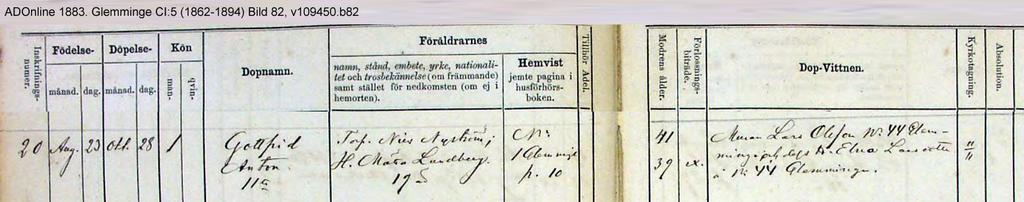 ADOnline 1883. Glemminge CI:5 (1862-1894) Bild 82, v109450.b82
Inskrifnings-
numer.
Födelse-
månad.
dag.
Döpelse-
månad.
dag.
Kön
man-
qvin-
Dopnamn.
Föräldrarnes
namn, stånd, embete, yrke, nationali-
tet och trosbekännelse (om främmande)
samt stället för nedkomsten (om ej i
hemorten).
Hemvist
jemte pagina i
husförhörs-
boken.
Tillhör Adel.
Modrens ålder.
Förlossnings-
biträde.
Dop-Vittnen.
Kyrkotagning.
Absolution.
20 Aug. 23 Oct. 28 1
Gottfrid
Anton
11a
Torp. Nils Nyström,
H. Lundberg.
No
1 Glemminge
p. 10
41
39 ex.
Lars Olsson No 44 Glem-
minge Elna
No 44 Glemminge.